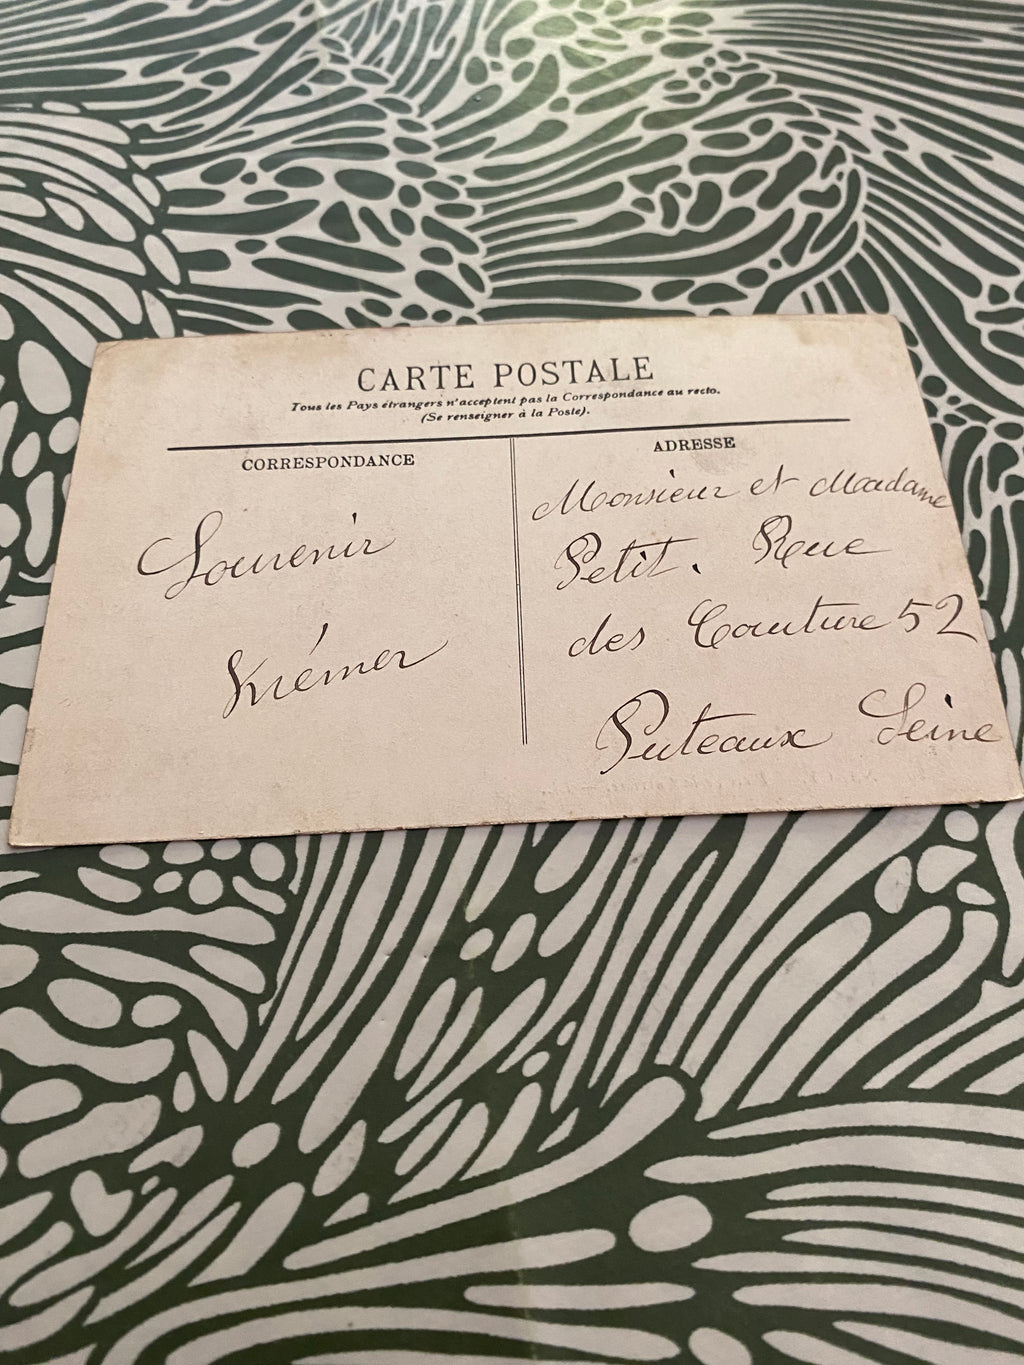 CARTE POSTALE
Tous les Pays étrangers n'acceptent pas la Correspondance au recto.
(Se renseigner à la Poste).
CORRESPONDANCE
Souvenir
Krémer
ADRESSE
Monsieur et Madame
Petit. Rue
des Couture 52
Puteaux Seine